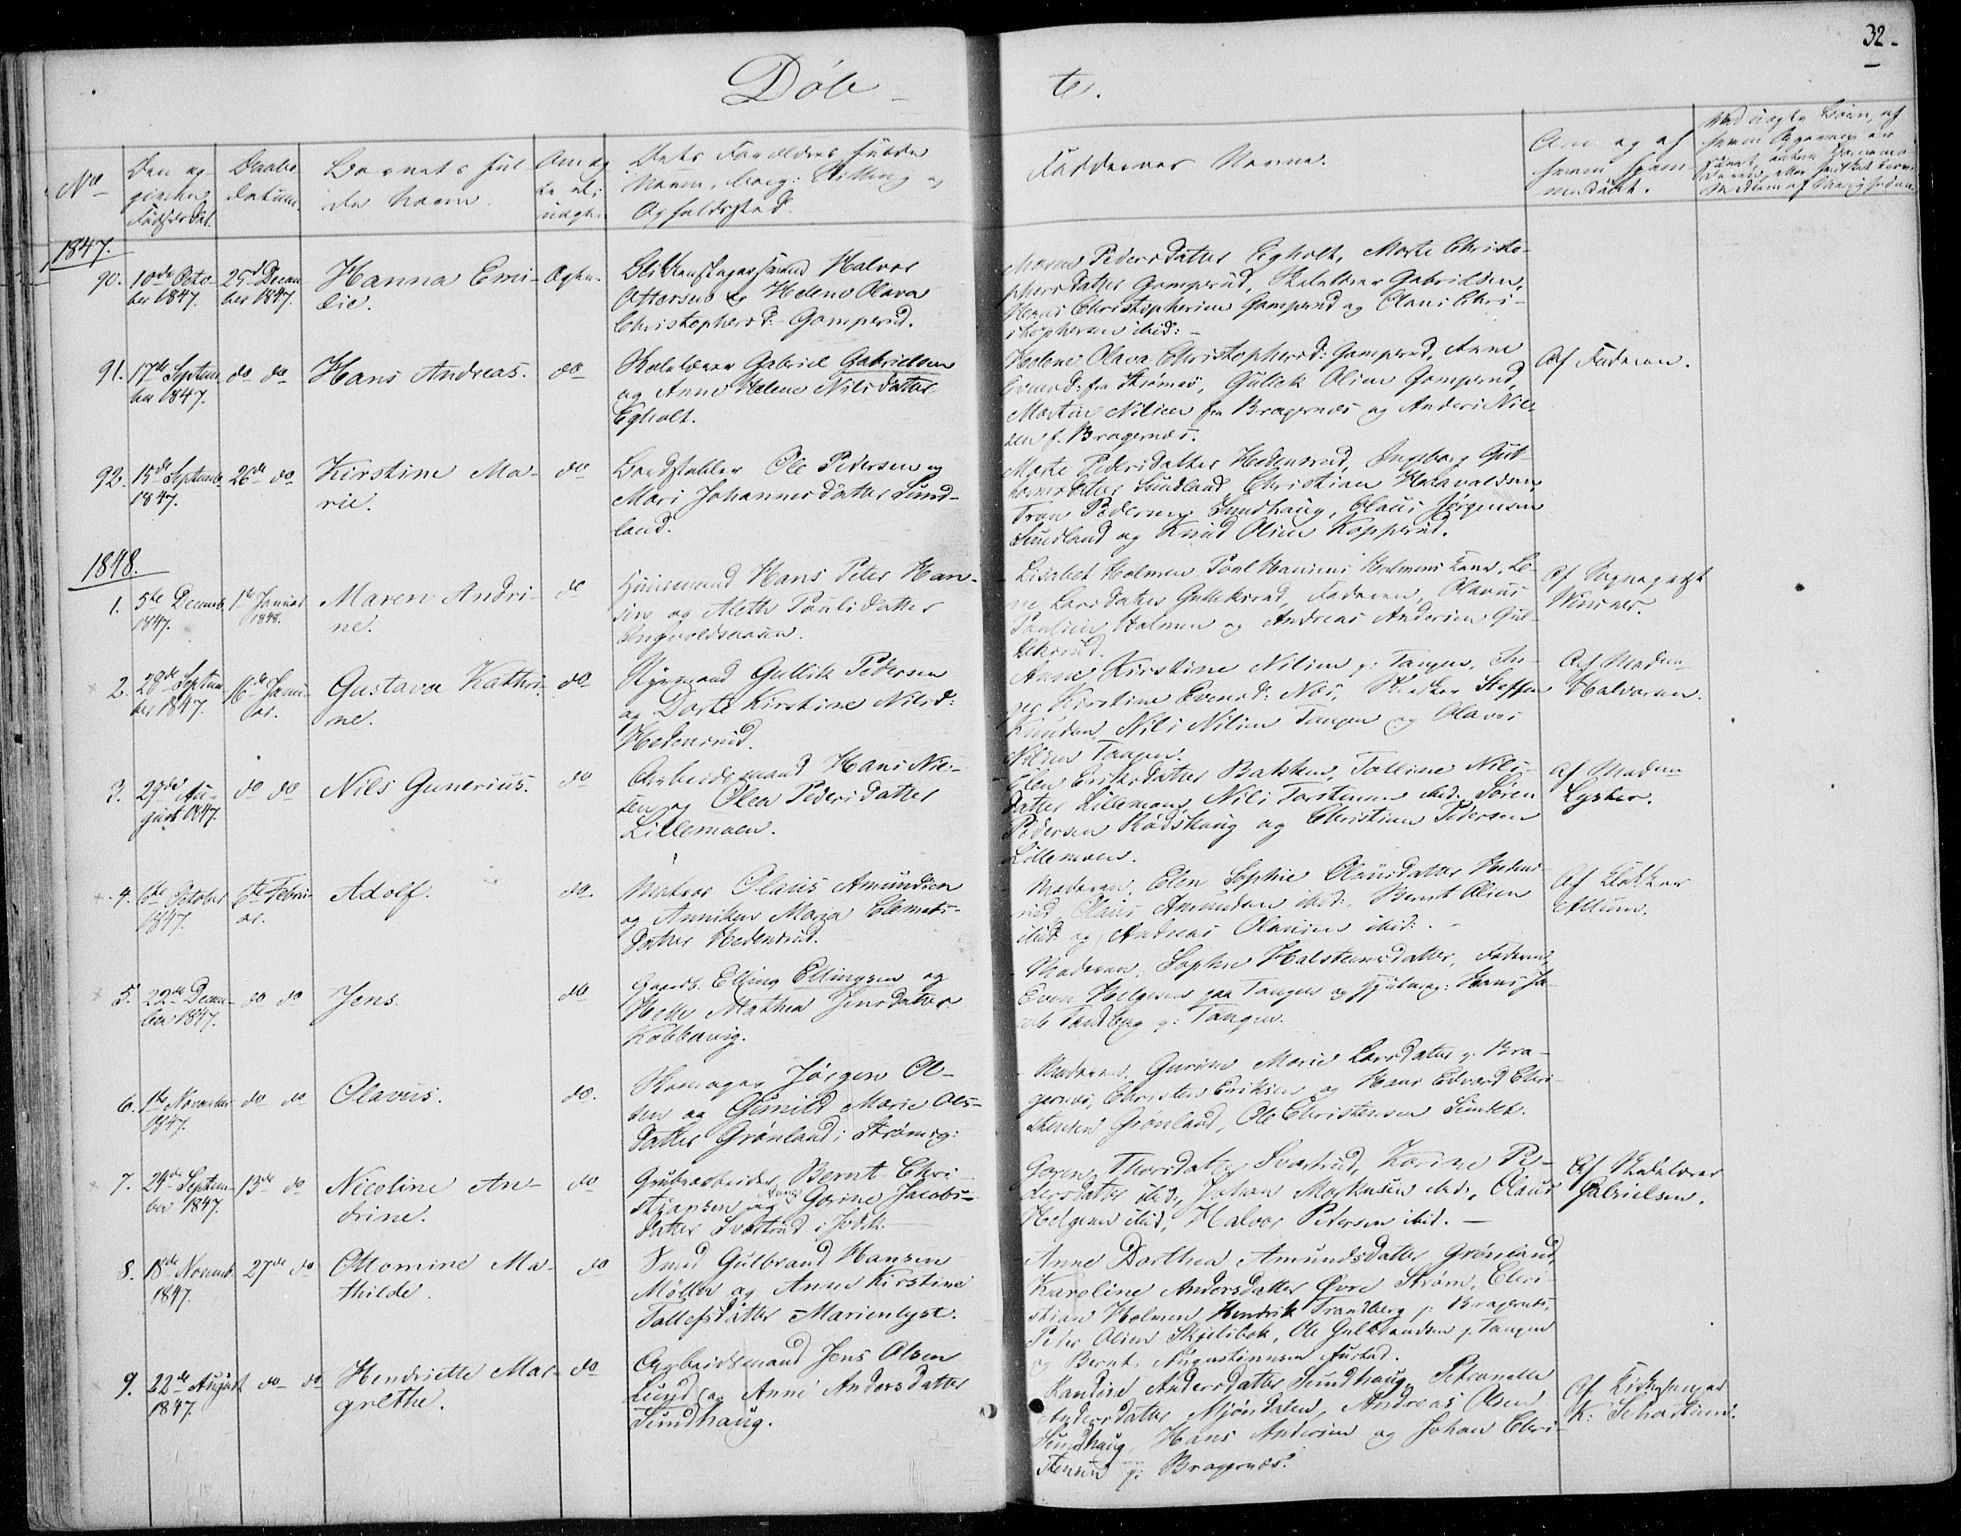 32.
Døb-
te.
No
Den op-
givne
Fødselsdat.
Daabs
datum.
Barnets ful-
de Navn.
Om æg
te el.
uægte.
Dets Forældres fulde
Navne, Borg: Stilling og
Opholdssted.
Faddernes Navne.
Om og af
hvem hjem-
medøbt.
1847.
90.
10de Octo-
ber 1847.
25d Decem
ber 1847.
Hanna Emi-
lie.
Ægte.
Halvor
Ottersen & Helene Olava
Christophersd: Gomperud.
Maren Pedersdatter Egholt, Marte Christo-
phersdatter Gomperud, Gabrielsen,
Christophersen Gomperud og Olaus Chri-
stophersen ibid:
91.
17de Septem
ber 1847.
do do
Hans Andreas.
do
Skolelærer Gabriel Gabrielsen
og Anne Helene Nilsdatter
Egholt.
Helene Olava Christophersd: Gomperud, Anne
fra Strømsö, Gullick Olsen Gomperud,
Martin Nilsen fra Bragernæs og Anders Nil-
sen f. Bragernæs.
Af Faderen.
92.
15de Septemb.
1847.
26de do
Kirstine Ma-
rie.
do
Ole Pedersen og
Mari Johannesdatter Sund-
land.
Marte Pedersdatter Hedensrud, Ingeborg Gut-
tormsdatter Sundland, Christian
Pedersen Sundhaug, Olaus Jørgensen
Sundland og Knud Olsen Kopperud.
1848.
1.
5te Decemb.
1847.
1ste Januar
1848.
Maren Andri-
ne.
do
Huusmand Hans Peter Han-
sen og Alethe Paulsdatter
Ingvoldsmoen.
Lisabet Holmen Poul Hansens Holmens Kone, Le-
ne Larsdatter Gulliksrud, Faderen, Olavus
Paulsen Holmen og Andreas Andersen Gul-
liksrud.
Af Sognepræst
2.
28de Septem
ber 1847.
16de Janu-
ar.
Gustava Kathri-
ne.
do
Gullik Pedersen
og Dorte Kirstine Nilsd:
Hedensrud.
Anne Kirstine Nilsen p: Tangen, In-
ger Kirstine Evensd: Næs, Steffen
Knudsen, Nils Nilsen Tangen og Olaves
Nilsen Tangen.
Af Madm
Halvorsen.
3.
29de Au-
gust 1847.
do do
Nils Gunerius.
do
Arbeidsmand Hans Niel-
sen og Olea Pedersdatter
Lillemoen.
Elen Eriksdatter Bakken, Talline Nils-
datter Lillemoen, Nils Torstensen ibid. Søren
Pedersen Rødshaug og Christian Petersen
Lillemoen.
Af Madm
Lysker.
4.
6te October
1847.
6te Febru-
ar.
Adolf.
do.
Matros Olaus Amundsen
og Anniken Maria Clemets-
datter Hedensrud.
Moderen, Elen Sophie Olausdatter Hedens-
rud, Olaus Amundsen ibid., Bernt Olsen
ibid og Andreas Olausen ibid:
Af Klokker
Allum.
5.
22de Decem-
ber 1847.
do do
Jens.
do
Gaardb. Elling Ellingsen og
Helle Mathea Jensdatter
Kobbervig.
Moderen, Sophie Halstensdatter, Faderen,
Even Helgesen paa Tangen og Hans Ja-
cob Tandberg p: Tangen.
6.
1ste November
1847.
do do
Olavus.
do.
Skomager Jörgen Ol-
sen og Gunild Marie Ols-
datter Grönland i Strömsg:
Moderen, Gurine Marie Larsdatter p. Bra-
gernæs, Christen Eriksen og Hans Edvard Chri-
stensen Grönland, Ole Christensen Sundet.
7.
24de Septem-
ber 1847.
13de do
Nicoline An-
drine.
do
Grubearbeider Bernt Chri-
stiansen og Anne Gorine Jacobs-
datter Svartrud i Fosk:
Goren Thorsdatter Svartrud, Karine Pe-
dersdatter ibid., Johan Mathisen ibid., Olaus
Helgesen ibid, Halvor Petersen ibid. —
Af Skolelærer
Gabrielsen.
8.
18de Novemb.
1847.
27de do
Ottomine Ma-
thilde.
do
Smed Gulbrand Hansen
Møller og Anne Kirstine
Tollefsdatter Marienlyst.
Anne Dorthea Amundsdatter Grönland,
Karoline Andersdatter Øvre Strøm, Chri-
stian Holmen, Hendrik Trandberg p: Bragernæs,
Peter Olsen Skjelibek, Ole Gulbrandsen p. Tangen
og Bernt Augustinusen Austad.
9.
22de August
1847.
do do
Hendriette Mar-
grethe.
do
Arbeidsmand Jens Olsen
Lund og Anne Andersdatter
Sundhaug.
Randine Andersdatter Sundhaug, Petronelle
Andersdatter Mjöndalen, Andreas Olsen
Sundhaug, Hans Andersen og Johan Chri-
stensen p: Bragernæs.
Af Kirkesanger
K: Sebastians.